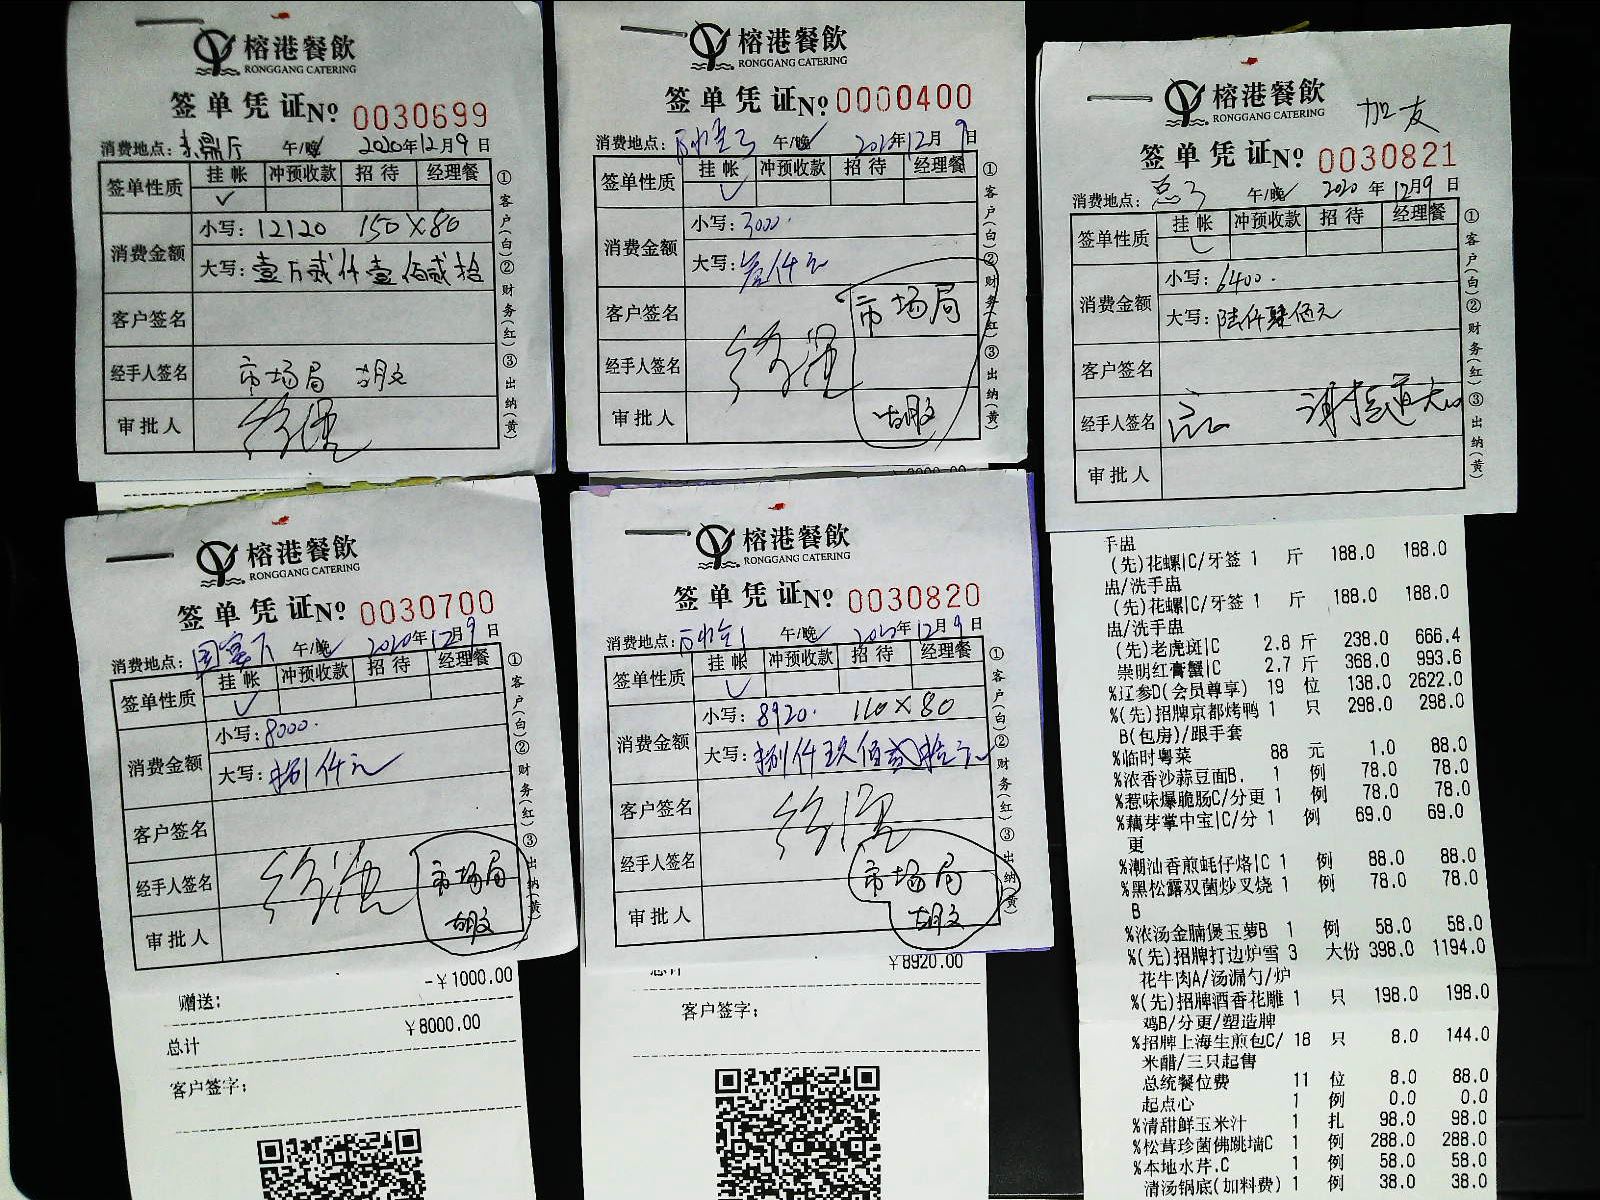 榕港餐飲
RONGGANG CATERING
签单凭证№ 0030699
消费地点： 午/晚 2020年12月9日
签单性质 挂帐 冲预收款 招待 经理餐
✓
消费金额
小写：12120 150×80
大写：壹万贰仟壹佰贰拾
客户签名
经手人签名 市场局 胡文
审批人
①客户(白)②财务(红)③出纳(黄)
榕港餐飲
RONGGANG CATERING
签单凭证№ 0000400
消费地点： 午/晚 2020年12月9日
签单性质 挂帐 冲预收款 招待 经理餐
✓
消费金额
小写：3000.
大写：叁仟元
客户签名 市场局
经手人签名
审批人 胡文
①客户(白)②财务(红)③出纳(黄)
榕港餐飲
RONGGANG CATERING
加友
签单凭证№ 0030821
消费地点： 午/晚 2020年12月9日
签单性质 挂帐 冲预收款 招待 经理餐
消费金额
小写：6400.
大写：陆仟肆佰元
客户签名
经手人签名
审批人
①客户(白)②财务(红)③出纳(黄)
榕港餐飲
RONGGANG CATERING
签单凭证№ 0030700
消费地点：国宴下 午/晚 2020年12月9日
签单性质 挂帐 冲预收款 招待 经理餐
✓
消费金额
小写：8000.
大写：捌仟元
客户签名
经手人签名 市场局
审批人 胡文
①客户(白)②财务(红)③出纳(黄)
-￥1000.00
赠送:
￥8000.00
总计
客户签字:
榕港餐飲
RONGGANG CATERING
签单凭证№ 0030820
消费地点： 午/晚 2020年12月9日
签单性质 挂帐 冲预收款 招待 经理餐
✓
消费金额
小写：8920. 110×80
大写：捌仟玖佰贰拾元
客户签名
经手人签名 市场局
审批人 胡文
①客户(白)②财务(红)③出纳(黄)
总计 ￥8920.00
客户签字:
手盅
(先)花螺|C/牙签 1 斤 188.0 188.0
盅/洗手盅
(先)花螺|C/牙签 1 斤 188.0 188.0
盅/洗手盅
(先)老虎斑|C 2.8 斤 238.0 666.4
崇明红膏蟹|C 2.7 斤 368.0 993.6
%辽参D(会员尊享) 19 位 138.0 2622.0
%(先)招牌京都烤鸭 1 只 298.0 298.0
B(包房)/跟手套
%临时粤菜 88 元 1.0 88.0
%浓香沙蒜豆面B. 1 例 78.0 78.0
%惹味爆脆肠C/分更 1 例 78.0 78.0
%藕芽掌中宝|C/分 1 例 69.0 69.0
更
%潮汕香煎蚝仔烙|C 1 例 88.0 88.0
%黑松露双菌炒叉烧 1 例 78.0 78.0
B
%浓汤金腩煲玉萝B 1 例 58.0 58.0
%(先)招牌打边炉雪 3 大份 398.0 1194.0
花牛肉A/汤漏勺/炉
%(先)招牌酒香花雕 1 只 198.0 198.0
鸡B/分更/塑造牌
%招牌上海生煎包C/ 18 只 8.0 144.0
米醋/三只起售
总统餐位费 11 位 8.0 88.0
起点心 1 例 0.0 0.0
%清甜鲜玉米汁 1 扎 98.0 98.0
%松茸珍菌佛跳墙C 1 例 288.0 288.0
%本地水芹.C 1 例 58.0 58.0
清汤锅底(加料费) 1 例 38.0 38.0